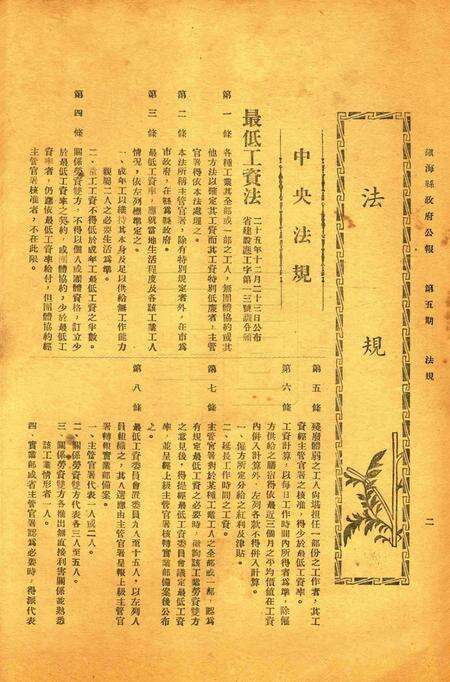 鎮海縣政府公報　第五期　法規
二
法規
中央法規
最低工資法
二十五年十二月二十三日公布
省建設施工字第一三號訓令頒
第一條　各種工業其全部或一部之工人，無團體協約或其
他方法以確定其工資而其工資特別低廉者，主管
官署得依本法處理之。
第二條　本法所稱主管官署，除有特別規定者外，在市爲
市政府，在縣爲縣政府。
第三條　最低工資率，應以當地生活程度及各該工業工人
情況，依左列標準定之。
一、成年工以維持其本身及足以供給無工作能力
親屬二人之必要生活爲準。
二、童工工資不得低於成年工最低工資之半數。
第四條　關係勞資雙方，不得以個人或團體資格，訂立少
於最低工資率之契約，或團體協約，少於最低工
資率者，仍應依最低工資率給付，但團體協約經
主管官署核准者，不在此限。
第五條　殘廢體弱之工人尚堪担任一部份之工作者，其工
資經主管官署之核准，得少於最低工資率。
第六條　工資計算，以每日工作時間內所得者爲準，除僱
方供給之膳宿得依最近三個月之平均價値在工資
內併入計算外，左列各款不得併入計算。
一、僱方所定分給之紅利及津貼。
二、延長工作時間之工資。
第七條　主管官署對於某種工業工人之全部或一部，認爲
有規定最低工資之必要時，徵詢該工業勞資雙方
之意見後，得提經最低工資委員會議定最低工資
率，並呈經上級主管官署核轉實業部備案後公布
之。
第八條　最低工資委員會置委員九人至十五人，以左列人
員組織之，其人選應由主管官署呈報上級主管官
署轉報實業部備案。
一、主管官署代表一人或二人。
二、關係勞資雙方代表各三人至五人。
三、關係勞資雙方各推出無直接利害關係並熟悉
該工業情形者一人。
四、實業部或省主管官署認爲必要時，得派代表